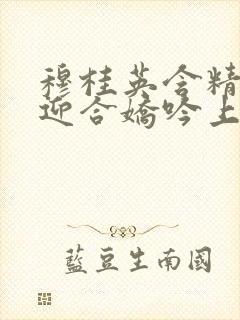 穆桂英含精
迎合嬌吟上
藍豆生南國